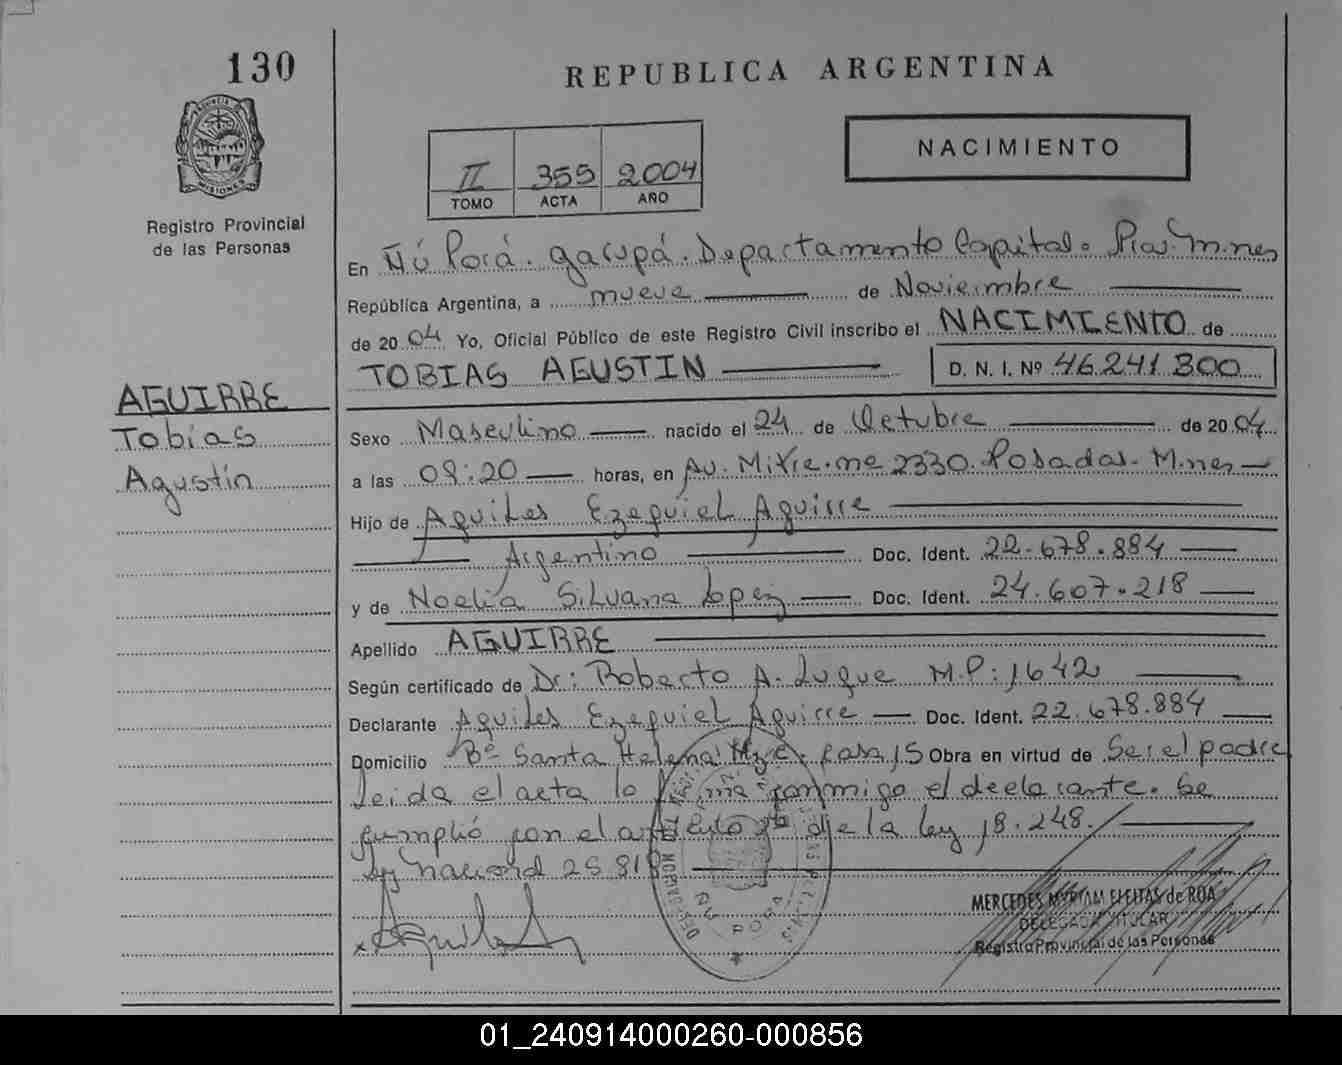 130
REPUBLICA ARGENTINA
PROVINCIA DE
MISIONES
Registro Provincial
de las Personas
II 355 2004
TOMO ACTA AÑO
NACIMIENTO
En Ñú Porá. Garupá. Departamento Capital. Pcia. M.nes
República Argentina, a nueve de Noviembre
de 2004 Yo, Oficial Público de este Registro Civil inscribo el NACIMIENTO de
TOBIAS AGUSTIN D. N. I. Nº 46.241.300
AGUIRRE
Tobias
Agustín
Sexo Masculino nacido el 24 de Octubre de 2004
a las 08:20 horas, en Av. Mitre. nº 2330. Posadas. M.nes
Hijo de Aquiles Ezequiel Aguirre
Argentino Doc. Ident. 22.678.884
y de Noelia Silvana Lopez Doc. Ident. 24.607.218
Apellido AGUIRRE
Según certificado de Dr: Roberto A. Luque M.P: 1642
Declarante Aquiles Ezequiel Aguirre Doc. Ident. 22.678.884
Domicilio Bº Santa Helena Mz C. casa 15 Obra en virtud de Ser el padre
Leida el acta la firma conmigo el declarante. Se
cumplió con el artículo de la ley 18.248.
Ley nacional 25.819
MERCEDES MYRIAM FLEITAS de ROA
DELEGADA TITULAR
Registro Provincial de las Personas
ÑU PORA
01_240914000260-000856